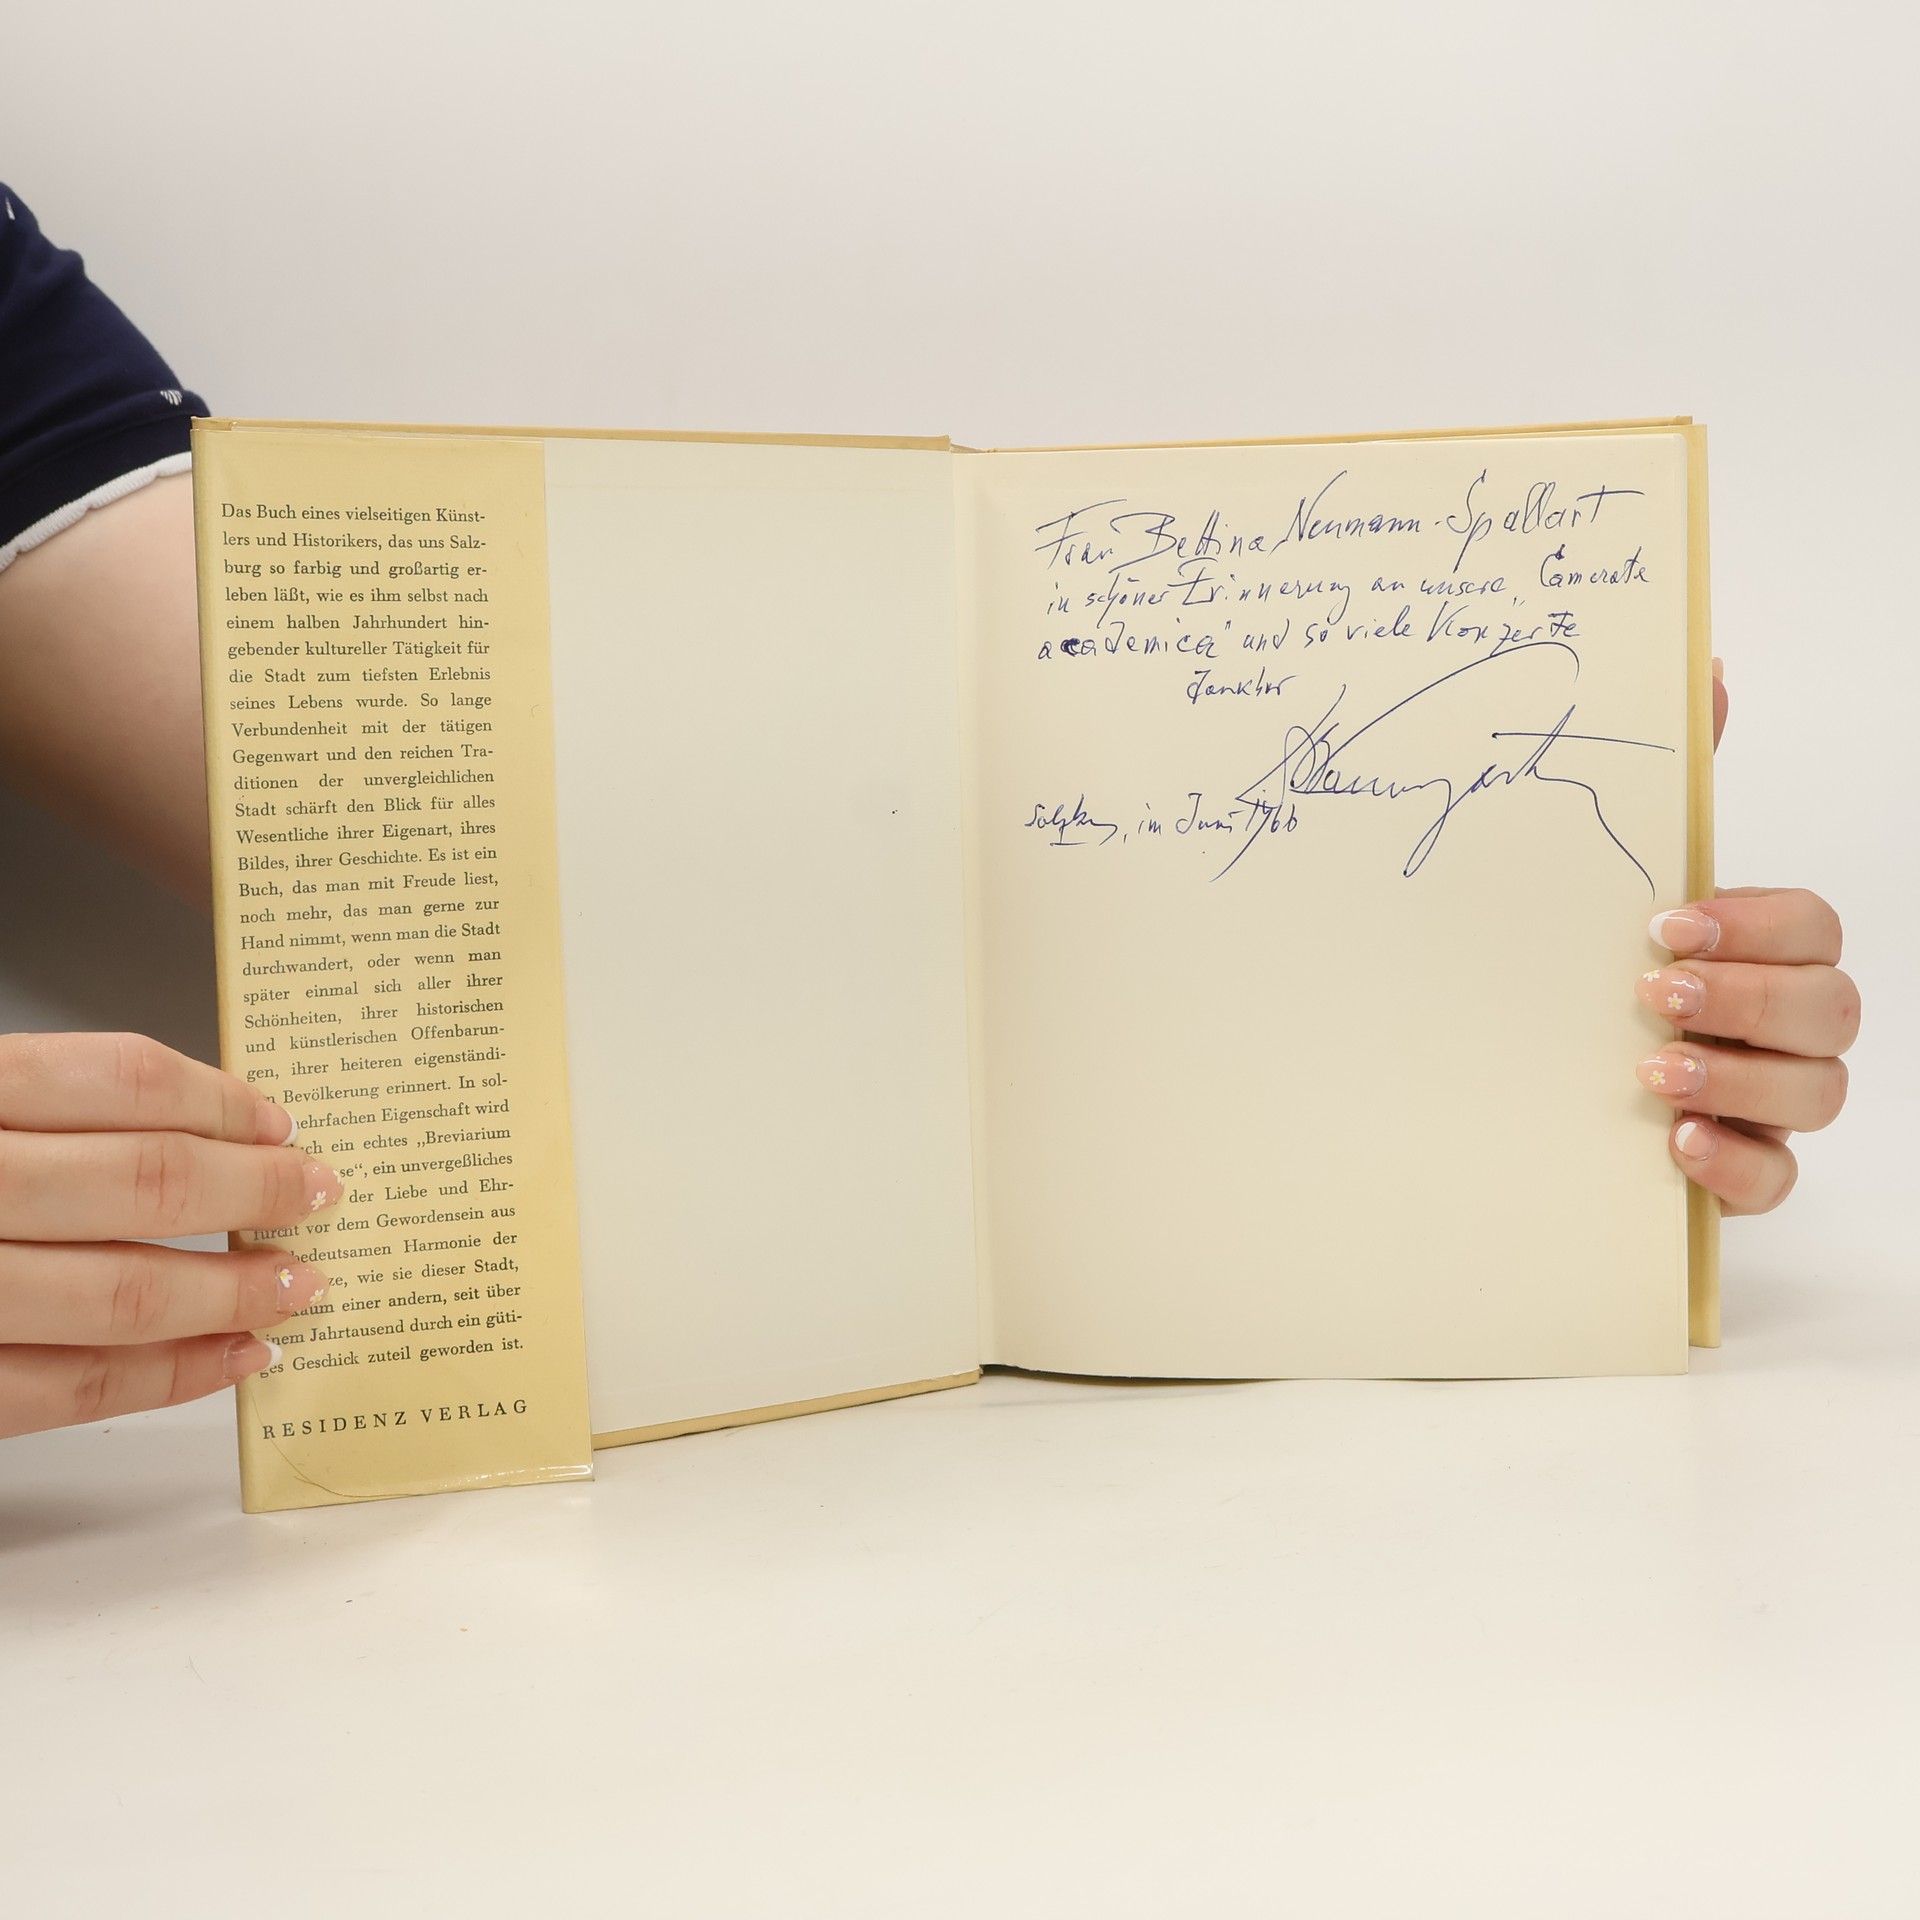 Das Buch eines vielseitigen Künst-
lers und Historikers, das uns Salz-
burg so farbig und großartig er-
leben läßt, wie es ihm selbst nach
einem halben Jahrhundert hin-
gebender kultureller Tätigkeit für
die Stadt zum tiefsten Erlebnis
seines Lebens wurde. So lange
Verbundenheit mit der tätigen
Gegenwart und den reichen Tra-
ditionen der unvergleichlichen
Stadt schärft den Blick für alles
Wesentliche ihrer Eigenart, ihres
Bildes, ihrer Geschichte. Es ist ein
Buch, das man mit Freude liest,
noch mehr, das man gerne zur
Hand nimmt, wenn man die Stadt
durchwandert, oder wenn man
später einmal sich aller ihrer
Schönheiten, ihrer historischen
und künstlerischen Offenbarun-
gen, ihrer heiteren eigenständi-
n Bevölkerung erinnert. In sol-
ehrfachen Eigenschaft wird
ch ein echtes „Breviarium
se“, ein unvergeßliches
der Liebe und Ehr-
furcht vor dem Gewordensein aus
bedeutsamen Harmonie der
ze, wie sie dieser Stadt,
kaum einer andern, seit über
inem Jahrtausend durch ein güti-
ges Geschick zuteil geworden ist.
RESIDENZ VERLAG
Frau Bettina Neumann-Spallart
in schöner Erinnerung an unsere „Camerata
academica" und so viele Konzerte
dankbar
Paumgartn
Salzburg, im Juni 1966